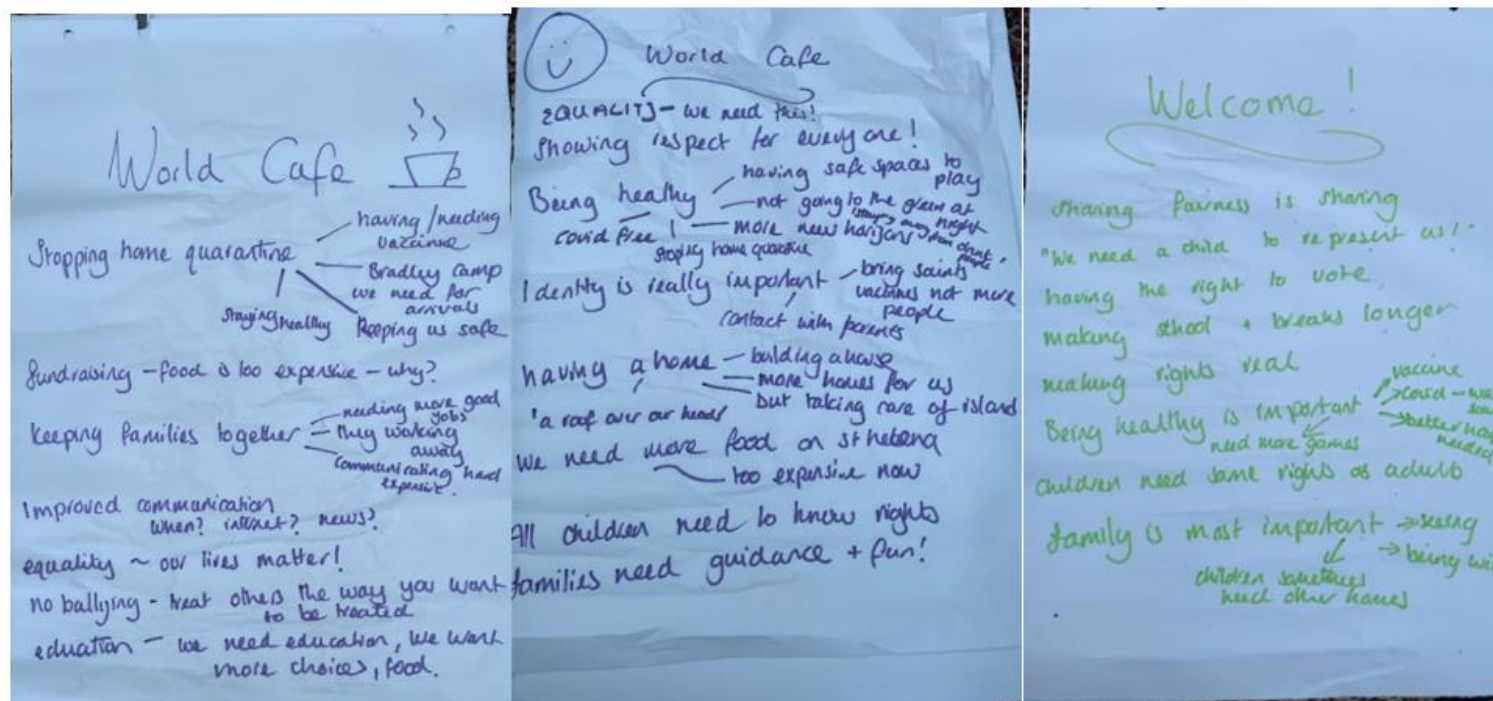 World Cafe
Stopping home quarantine
having/needing
vaccinne
Bradley camp
we need for
arrivals
Keeping us safe
staying healthy
fundraising - food is too expensive - why?
keeping families together
needing more good
jobs
they working
away
communicating hard
expensive.
Improved communication
when? internet? news?
equality ~ our lives matter!
no ballying - treat others the way you want
to be treated
eduation - we need education, we want
more choices, food.
World Cafe
EQUALITY - we need this!
showing respect for everyone!
Being healthy
having safe spaces to
play
not going to the green at
night
staying away from drunk
people
more new horizons
stopping home quarantine
covid free!
Identity is really important
bring saints
vaccines not more
people
contact with parents
having a home
building a house
more homes for us
but taking care of island
'a roof over our heads'
We need more food on st helena
too expensive now
All children need to know rights
families need guidance + fun!
Welcome!
sharing fairness is sharing
"We need a child to represent us!"
having the right to vote
making school + breaks longer
making rights real
Being healthy is important
vaccine
covid - we
better
need more games
children need same rights as adults
family is most important
seeing
being
children sometimes
need other homes